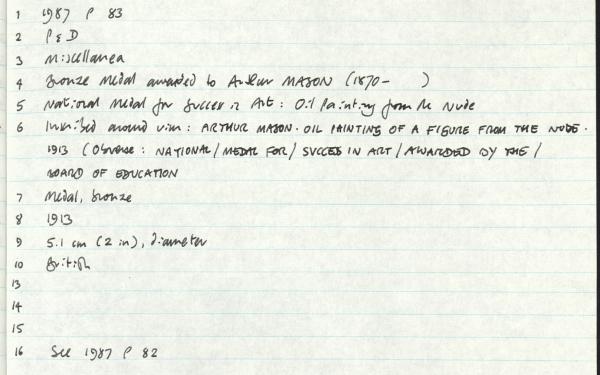 1 1987 P 83
2 P & D
3 Miscellanea
4 Bronze Medal awarded to Arthur MASON (1870- )
5 National Medal for Success in Art: Oil Painting from the Nude
6 Inscribed around rim: ARTHUR MASON. OIL PAINTING OF A FIGURE FROM THE NUDE.
1913 (Obverse: NATIONAL/MEDAL FOR/SUCCESS IN ART/AWARDED BY THE/
BOARD OF EDUCATION
7 Medal, bronze
8 1913
9 5.1 cm (2 in), diameter
10 British
13
14
15
16 See 1987 P 82